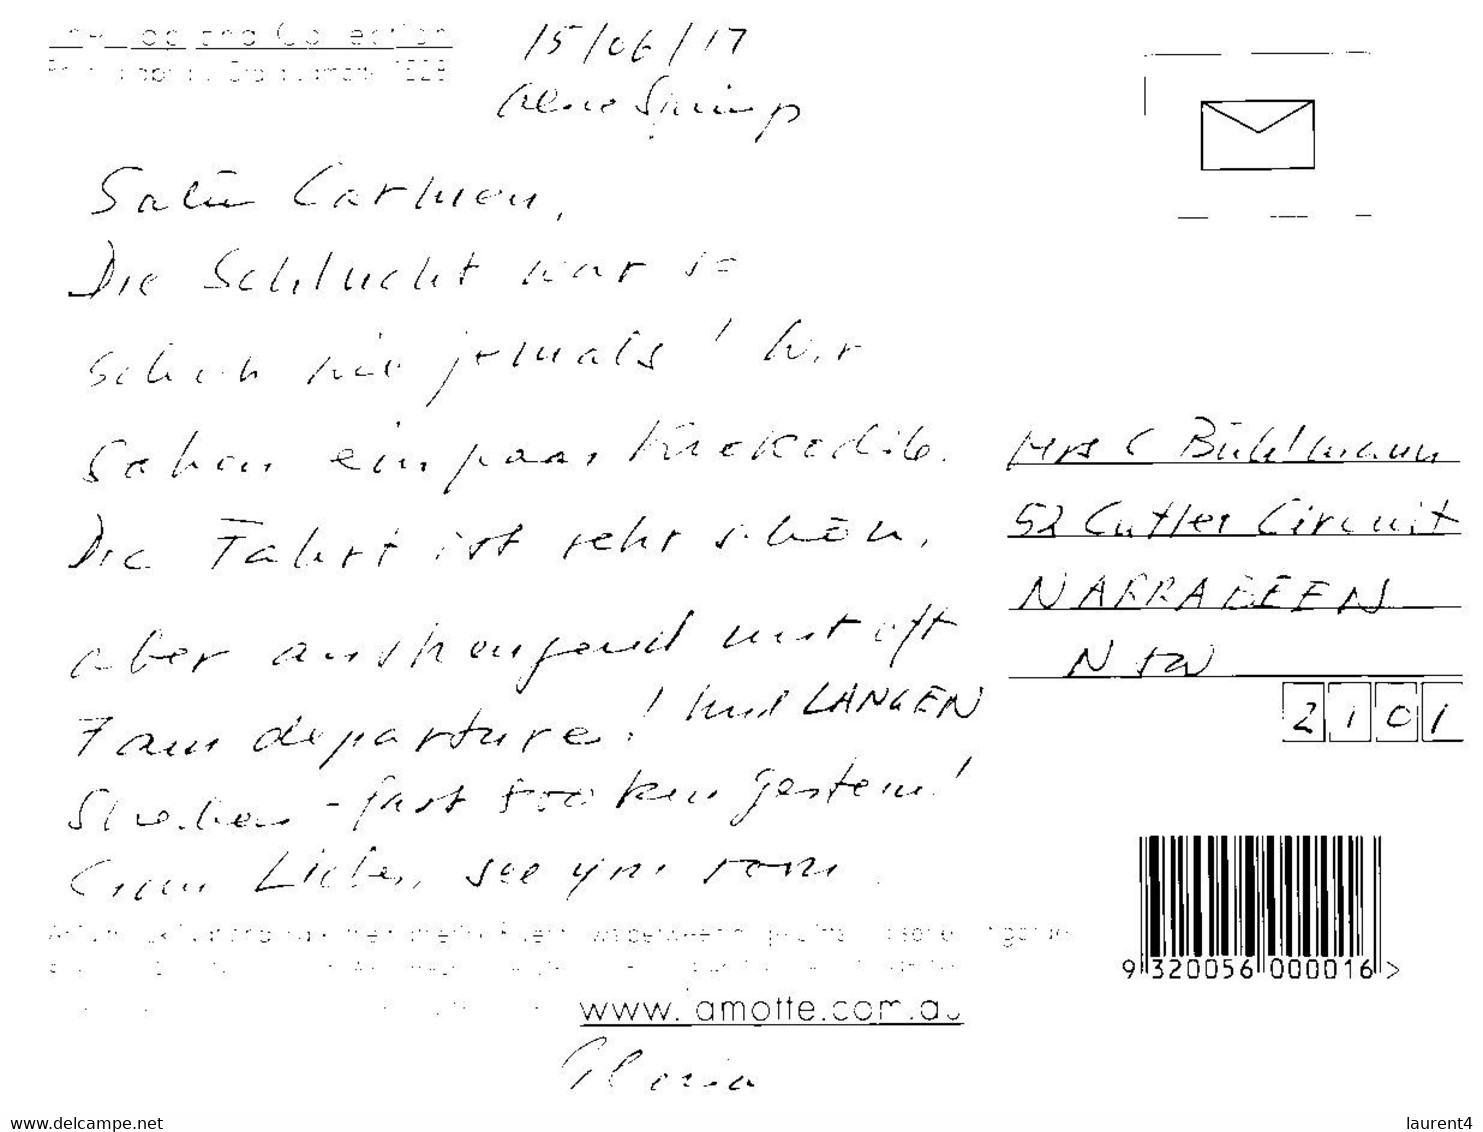 15/06/17
Springs
Salü Carmen,
Die Schlucht war so
schön wie jemals! Wir
sahen ein paar Krokodile.
Die Fahrt ist sehr schön,
aber anstrengend mit oft
7am departure! Und LANGEN
Strecken - fast 800 km gestern!
Ciao Liebes, see you soon
Mrs C Bühlmann
52 Cutler Circuit
NARRABEEN
NSW
2101
9 320056 000016 >
Gloria
www.delcampe.net
laurent4